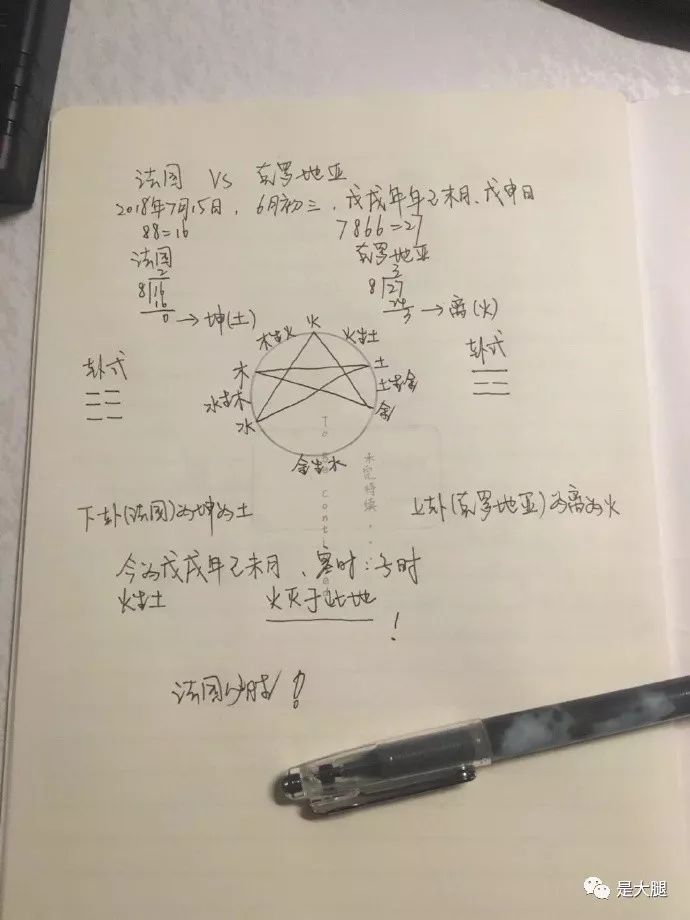 法国 VS 克罗地亚
2018年7月15日，6月初三，戊戌年年己未月、戊申日
88=16 7866=27
法国 克罗地亚
2 3
8 16 8 27
16 24
0 → 坤(土) 3 → 离(火)
火
木生火 火生土
卦式 木 土 卦式
水生木 土生金
水 金
金生水
To be continued
未完待续...
下卦(法国)为坤为土 上卦(克罗地亚)为离为火
今为戊戌年己未月、赛时:子时
火生土 火灭于此地!
法国必胜!
是大腿